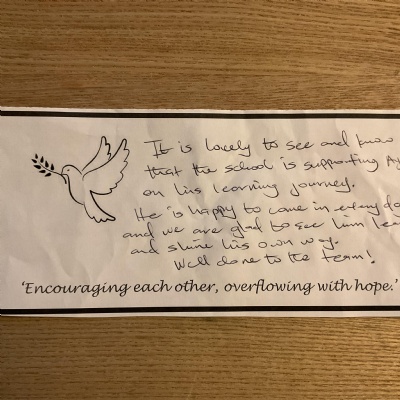 It is lovely to see and know
that the school is supporting Ay
on his learning journey.
He is happy to come in every da
and we are glad to see him lea
and shine his own way.
Well done to the team!
'Encouraging each other, overflowing with hope.'